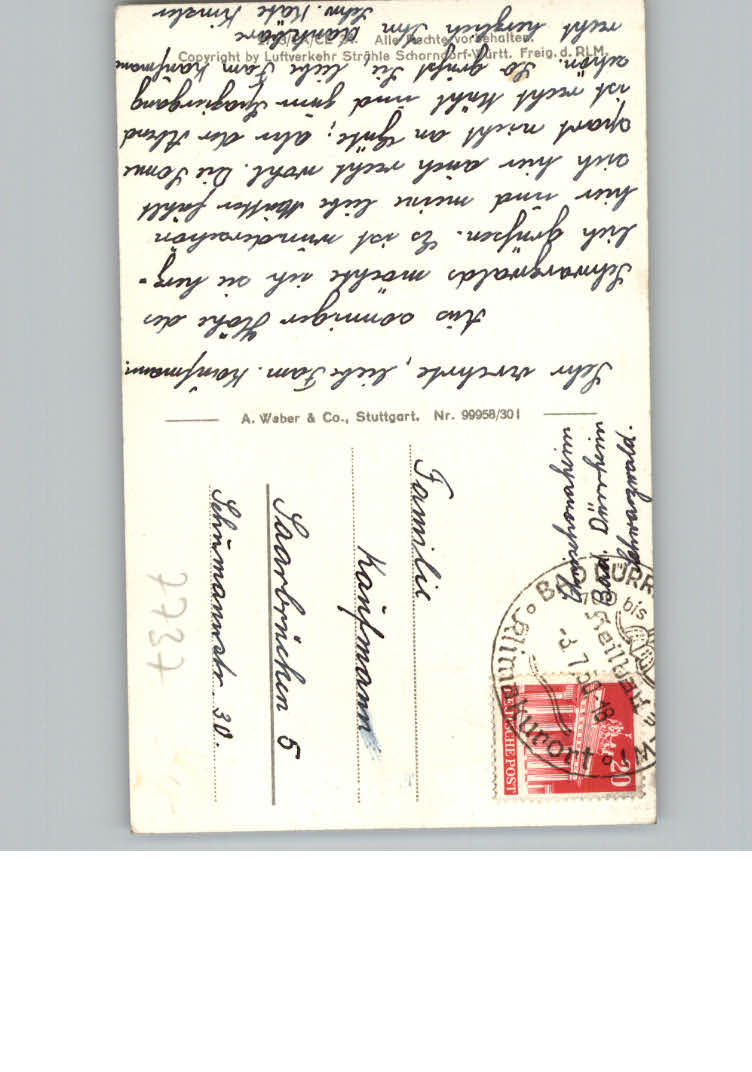 Sehr verehrte, liebe Fam. Kaufmann.
Aus sonniger Höhe des
Schwarzwalds möchte ich sie herz-
lich grüßen. Es ist wunderschön
hier und meine liebe Mutter fühlt
sich hier auch recht wohl. Die Sonne
spart nicht an Güte; aber der Abend
ist recht kühl und zum Spaziergang
schön. So grüßt Sie liebe Fam. Kaufmann
recht herzlich Ihre dankbare
Schw. Käte
Alle Rechte vorbehalten.
Copyright by Luftverkehr Strähle Schorndorf-Württ. Freig. d. RLM.
A. Weber & Co., Stuttgart. Nr. 99958/301
Bad Dürrheim
Schwarzwald.
Familie
Kaufmann
Saarbrücken 5
Schumannstr. 30.
BAD DÜRR
bis
Heilbad
-3.7.50-18
Klimakurort
20
DEUTSCHE POST
7737